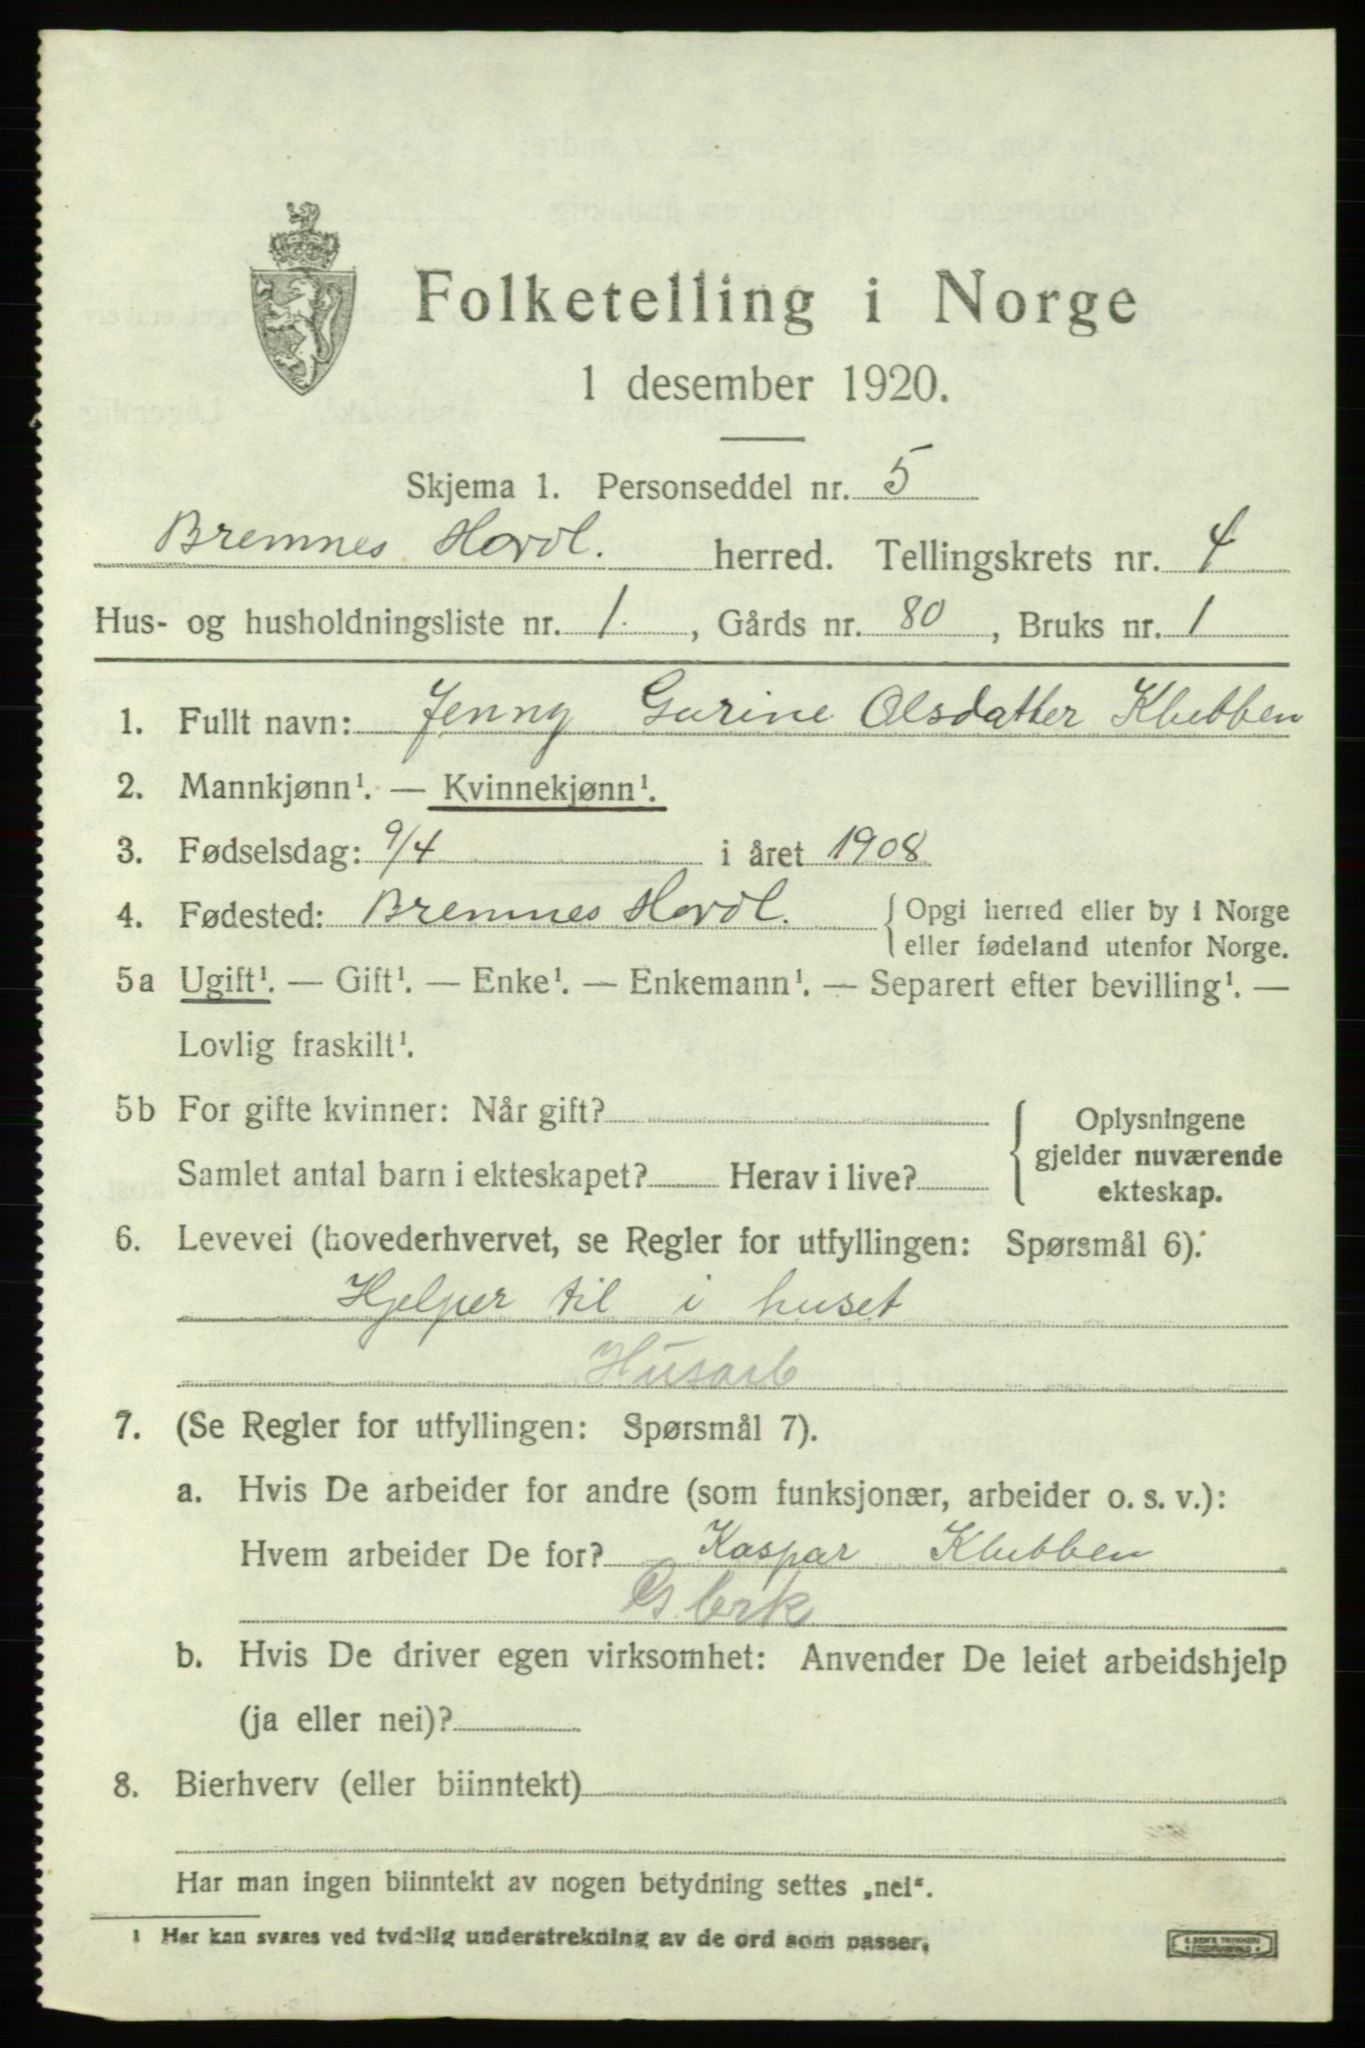 Folketelling i Norge
1 desember 1920.
Skjema 1. Personseddel nr. 5
Bremnes Hordl. herred. Tellingskrets nr. 4
Hus- og husholdningsliste nr. 1. , Gårds nr. 80 , Bruks nr. 1
1. Fullt navn: Jenny Gurine Olsdatter Klubben
2. Mannkjønn¹. — Kvinnekjønn¹.
3. Fødselsdag: 9/4 i året 1908
4. Fødested: Bremnes Hordl. { Opgi herred eller by i Norge
eller fødeland utenfor Norge.
5a Ugift¹. — Gift¹. — Enke¹. — Enkemann¹. — Separert efter bevilling¹. —
Lovlig fraskilt¹.
5b For gifte kvinner: Når gift?
Samlet antal barn i ekteskapet? Herav i live?
{ Oplysningene
gjelder nuværende
ekteskap.
6. Levevei (hovederhvervet, se Regler for utfyllingen: Spørsmål 6):
Hjelper til i huset
Husarb
7. (Se Regler for utfyllingen: Spørsmål 7).
a. Hvis De arbeider for andre (som funksjonær, arbeider o. s. v.):
Hvem arbeider De for? Kaspar Klubben
b. Hvis De driver egen virksomhet: Anvender De leiet arbeidshjelp
(ja eller nei)?
8. Bierhverv (eller biinntekt)
Har man ingen biinntekt av nogen betydning settes „nei“.
1 Her kan svares ved tydelig understrekning av de ord som passer.